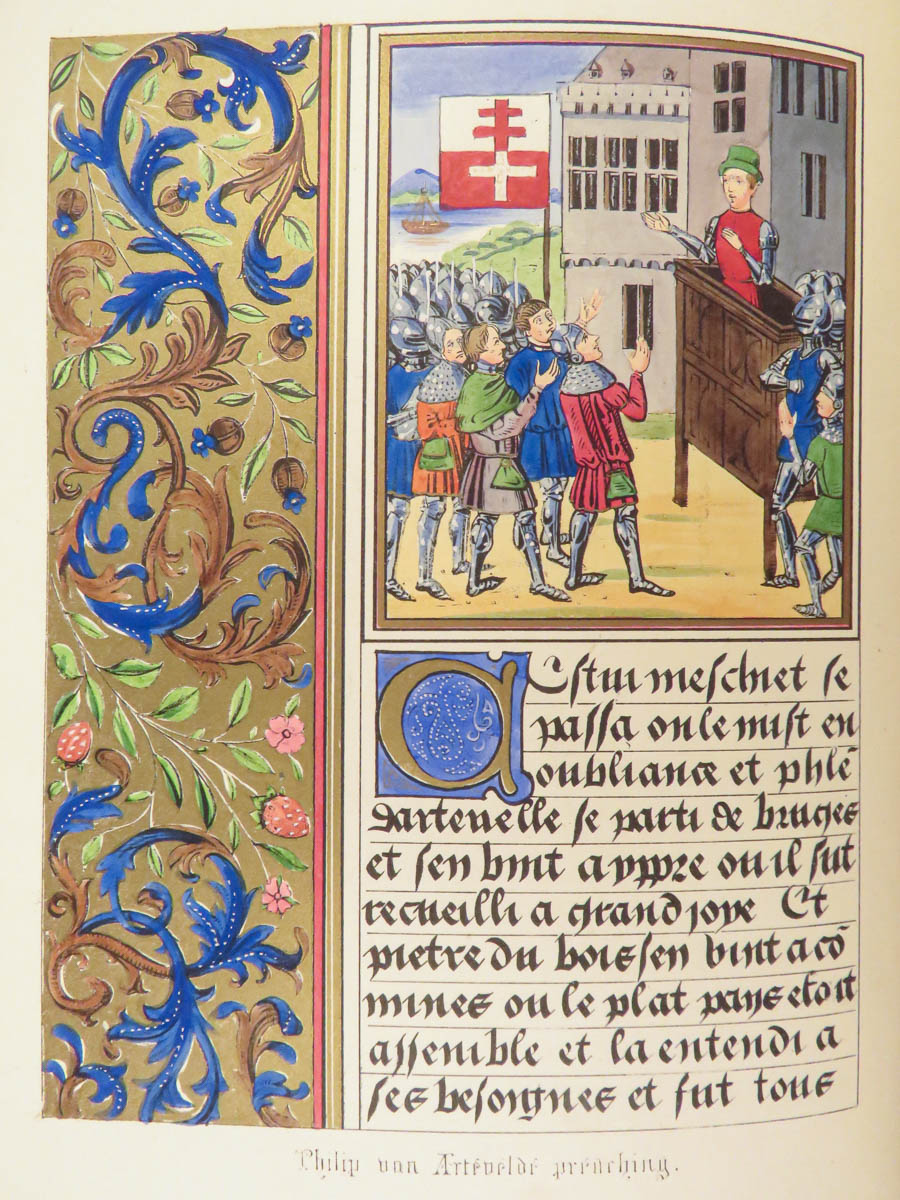 Cestui meschief se
passa on le mist en
oubliance et phlẽ
dartevelle se parti de bruges
et sen vint a yppre ou il fut
recueilli a grand joye Et
pietre du bois sen vint a cõ
mines ou le plat pays estoit
assemble et la entendi a
ses besongnes et fut tous
Philip van Artevelde preaching.